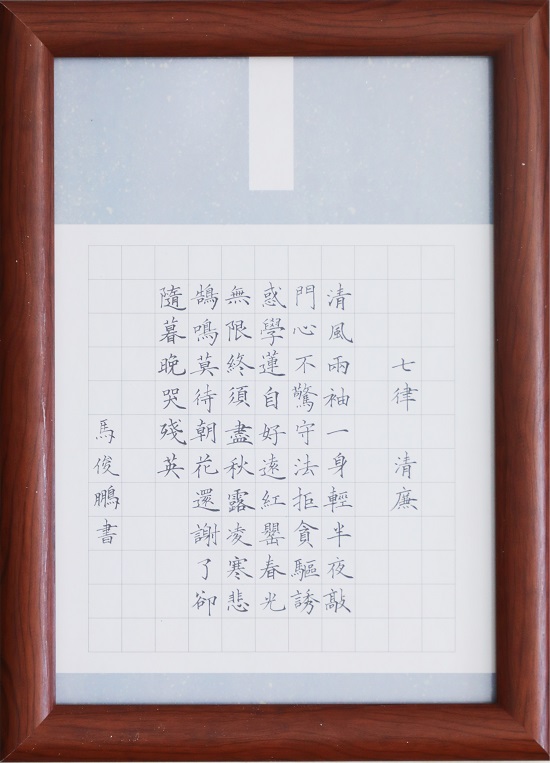 七律 清廉
清風兩袖一身輕半夜敲
門心不驚守法拒貪驅誘
惑學蓮自好遠紅罌春光
無限終須盡秋露凌寒悲
鵠鳴莫待朝花還謝了卻
隨暮晚哭殘英
馬俊鵬書